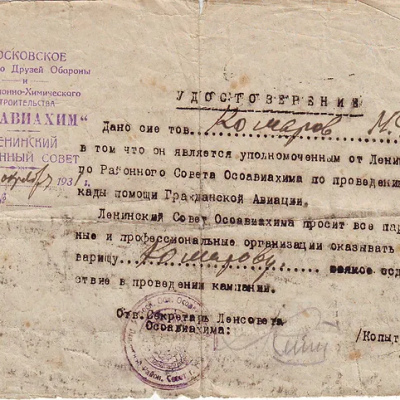 ОСКОВСКОЕ
о Друзей Обороны
и
ионно-Химического
троительства
АВИАХИМ"
ЕНИНСКИЙ
ННЫЙ СОВЕТ
октября 193
УДОСТОВЕРЕНИЕ
Дано сие тов. Комаров М.
в том что он является уполномоченным от Лени
го Районного Совета Осоавиахима по проведени
кады помощи Гражданской Авиации.
Ленинский Совет Осоавиахима просит все пар
ные и профессиональные организации оказывать
варищу Комарову всякое сод
ствие в проведении кампаний.
Отв.Секретарь Ленсовета
Осоавиахима:
/Копыт